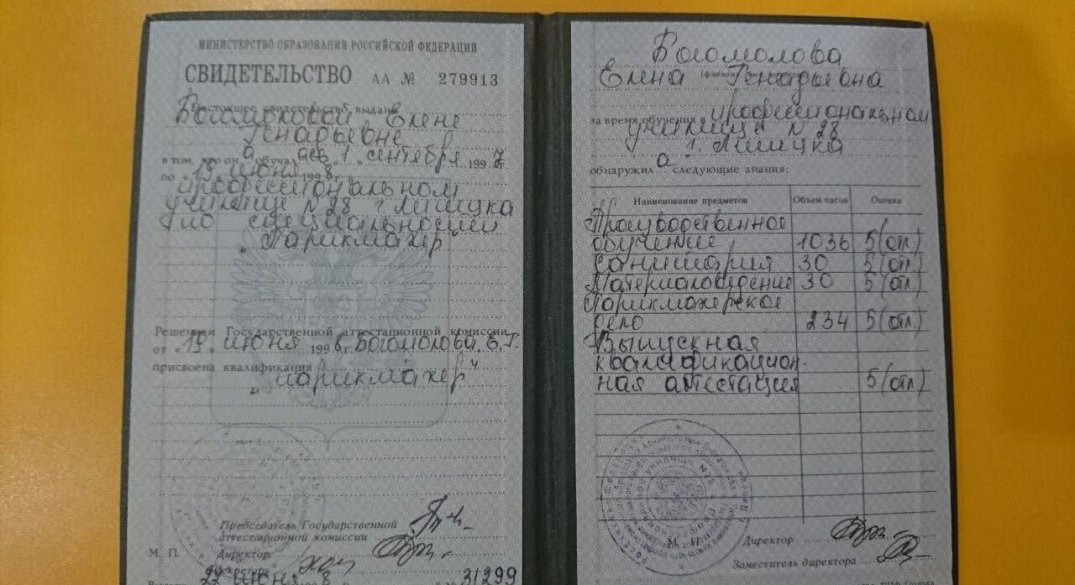 МИНИСТЕРСТВО ОБРАЗОВАНИЯ РОССИЙСКОЙ ФЕДЕРАЦИИ
СВИДЕТЕЛЬСТВО АА № 279913
Настоящее свидетельство выдано
Богомоловой Елене
Генадьевне
в том, что он а обучал ась 1 „ сентября 1997 г.
по „ 15 „ июня 1998 г.
профессиональном
училище №28 г. Липецка
по специальности
„Парикмахер"
Решением Государственной аттестационной комиссии
от „ 19 „ июня 1998 г. Богомолова Е.Г.
присвоена квалификация
„парикмахер"
Председатель Государственной
аттестационной комиссии
М. П. Директор
Секретарь
22 июня 8 № 31299
Богомолова
Елена Генадьевна
за время обучения в профессиональном
училище №28
г. Липецка
обнаружил а следующие знания:
Наименование предметов Объем часов Оценка
Производственное
обучение 1036 5(отл)
Санитария 30 5(отл)
Материаловедение 30 5(отл)
Парикмахерское
дело 234 5(отл)
Выпускная
квалификацион-
ная аттестация 5(отл)
М. П. Директор
Заместитель директора